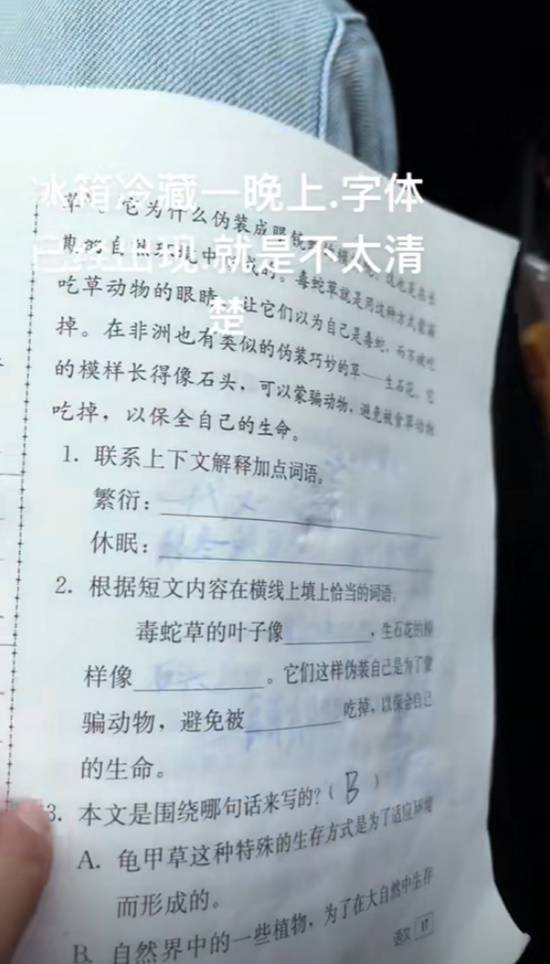 冰箱冷藏一晚上.字体
已经出现.就是不太清
楚
草”。它为什么伪装成眼镜
自然环境中形成的。毒蛇草就是用这种方式蒙骗
吃草动物的眼睛，让它们以为自己是毒蛇，而不被吃
掉。在非洲也有类似的伪装巧妙的草——生石花。它
的模样长得像石头，可以蒙骗动物，避免被食草动物
吃掉，以保全自己的生命。
1. 联系上下文解释加点词语。
繁衍：一代又
休眠：
2. 根据短文内容在横线上填上恰当的词语。
毒蛇草的叶子像________，生石花的模
样像________。它们这样伪装自己是为了蒙
骗动物，避免被________吃掉，以保全自己
的生命。
3. 本文是围绕哪句话来写的？（ B ）
A. 龟甲草这种特殊的生存方式是为了适应环境
而形成的。
B. 自然界中的一些植物，为了在大自然中生存
语文 17